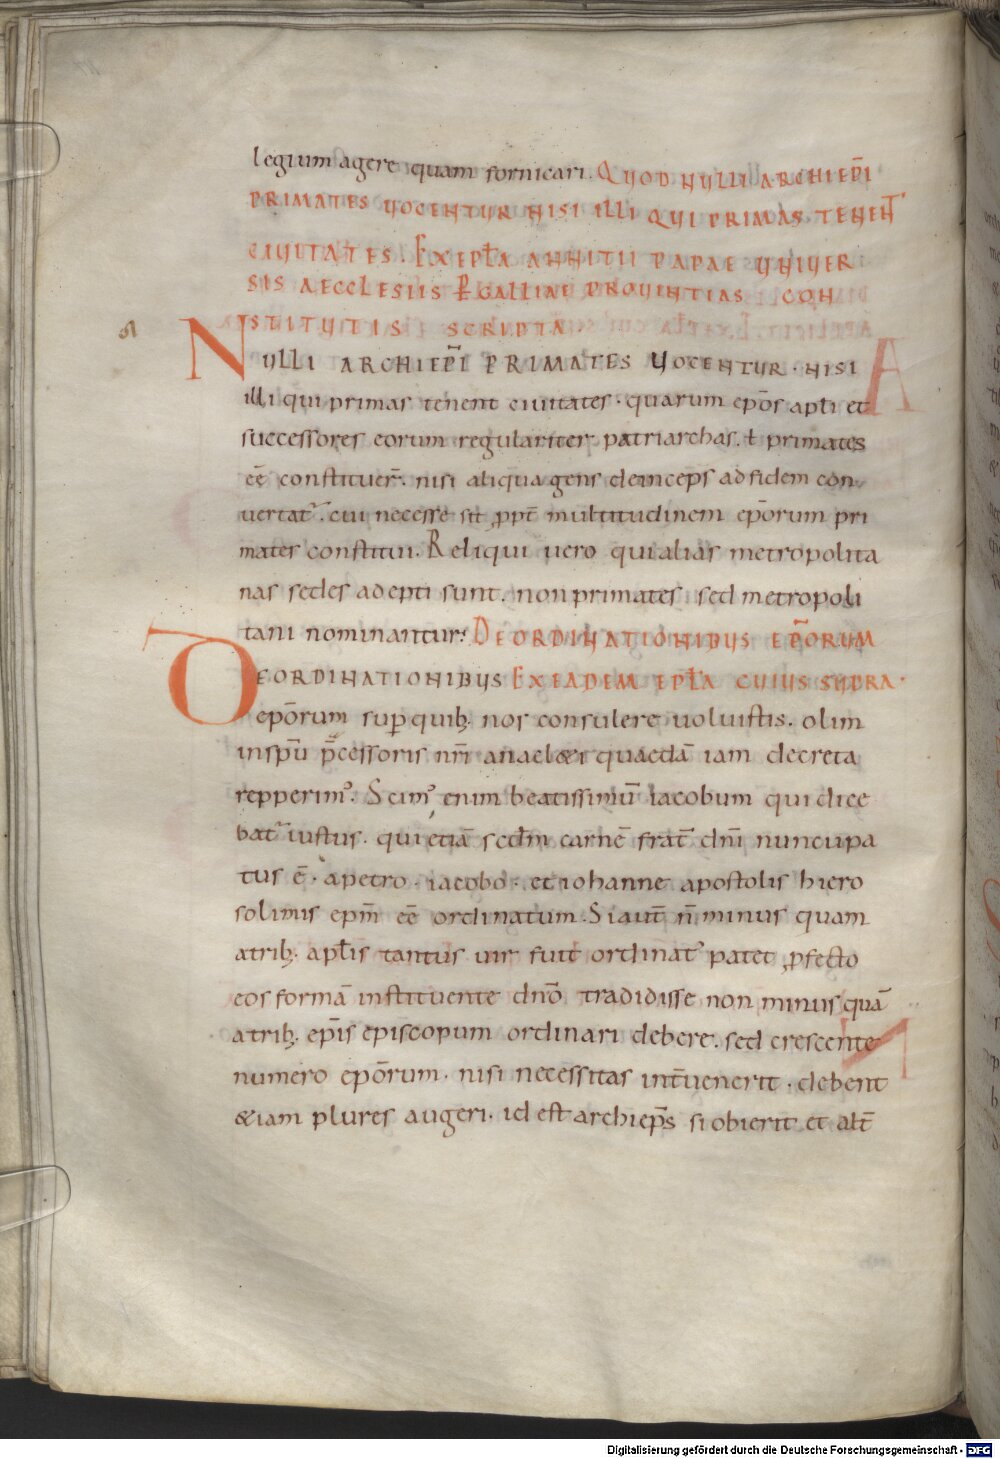 legium agere quam fornicari. QUOD NULLI ARCHIEPI
PRIMATES UOCENTUR NISI ILLI QUI PRIMAS TENENT
CIUITATES. EXEPLA ANNITII PAPAE UNIUER
SIS AECCLESIIS P GALLIAE PROUINTIAS CON
STITUTIS SCRIPTA
NULLI ARCHIEPI PRIMATES UOCENTUR. NISI
illi qui primas tenent ciuitates. quarum epōs apli et
successores eorum regulariter patriarchas. ł primates
eē constituer̄. nisi aliqua gens deinceps ad fidem con
uertat᷑. cui necesse sit ꝓpt̄ multitudinem epōrum pri
mates constitui. Reliqui uero qui alias metropolita
nas sedes adepti sunt. non primates sed metropoli
tani nominantur. DE ORDINATIONIBUS EPŌRUM
DE ORDINATIONIBUS EX EADEM EPŁA CUIUS SUPRA.
epōrum sup quib; nos consulere uoluistis. olim
in spū p̄cessoris nr̄i anacl&i quaedā iam decreta
repperim᷒. Scim᷒ enim beatissimū iacobum qui dice
bat᷑ iustus. qui etiā scdm carnē frat̄ dnī nuncupa
tus ē. a petro. iacobo. et iohanne apostolis hiero
solimis epm̄ eē ordinatum. Si aut̄ n̄ minus quam
a trib; apłis tantus uir fuit ordinat᷒ patet ꝓfecto
eos formā instituente dnō tradidisse non minus quā
a trib; epīs episcopum ordinari debere. sed crescente
numero epōrum. nisi necessitas int̄uenerit. debent
&iam plures augeri. id est archiep̄s si obierit et alt̄
A
N
Digitalisierung gefördert durch die Deutsche Forschungsgemeinschaft - DFG